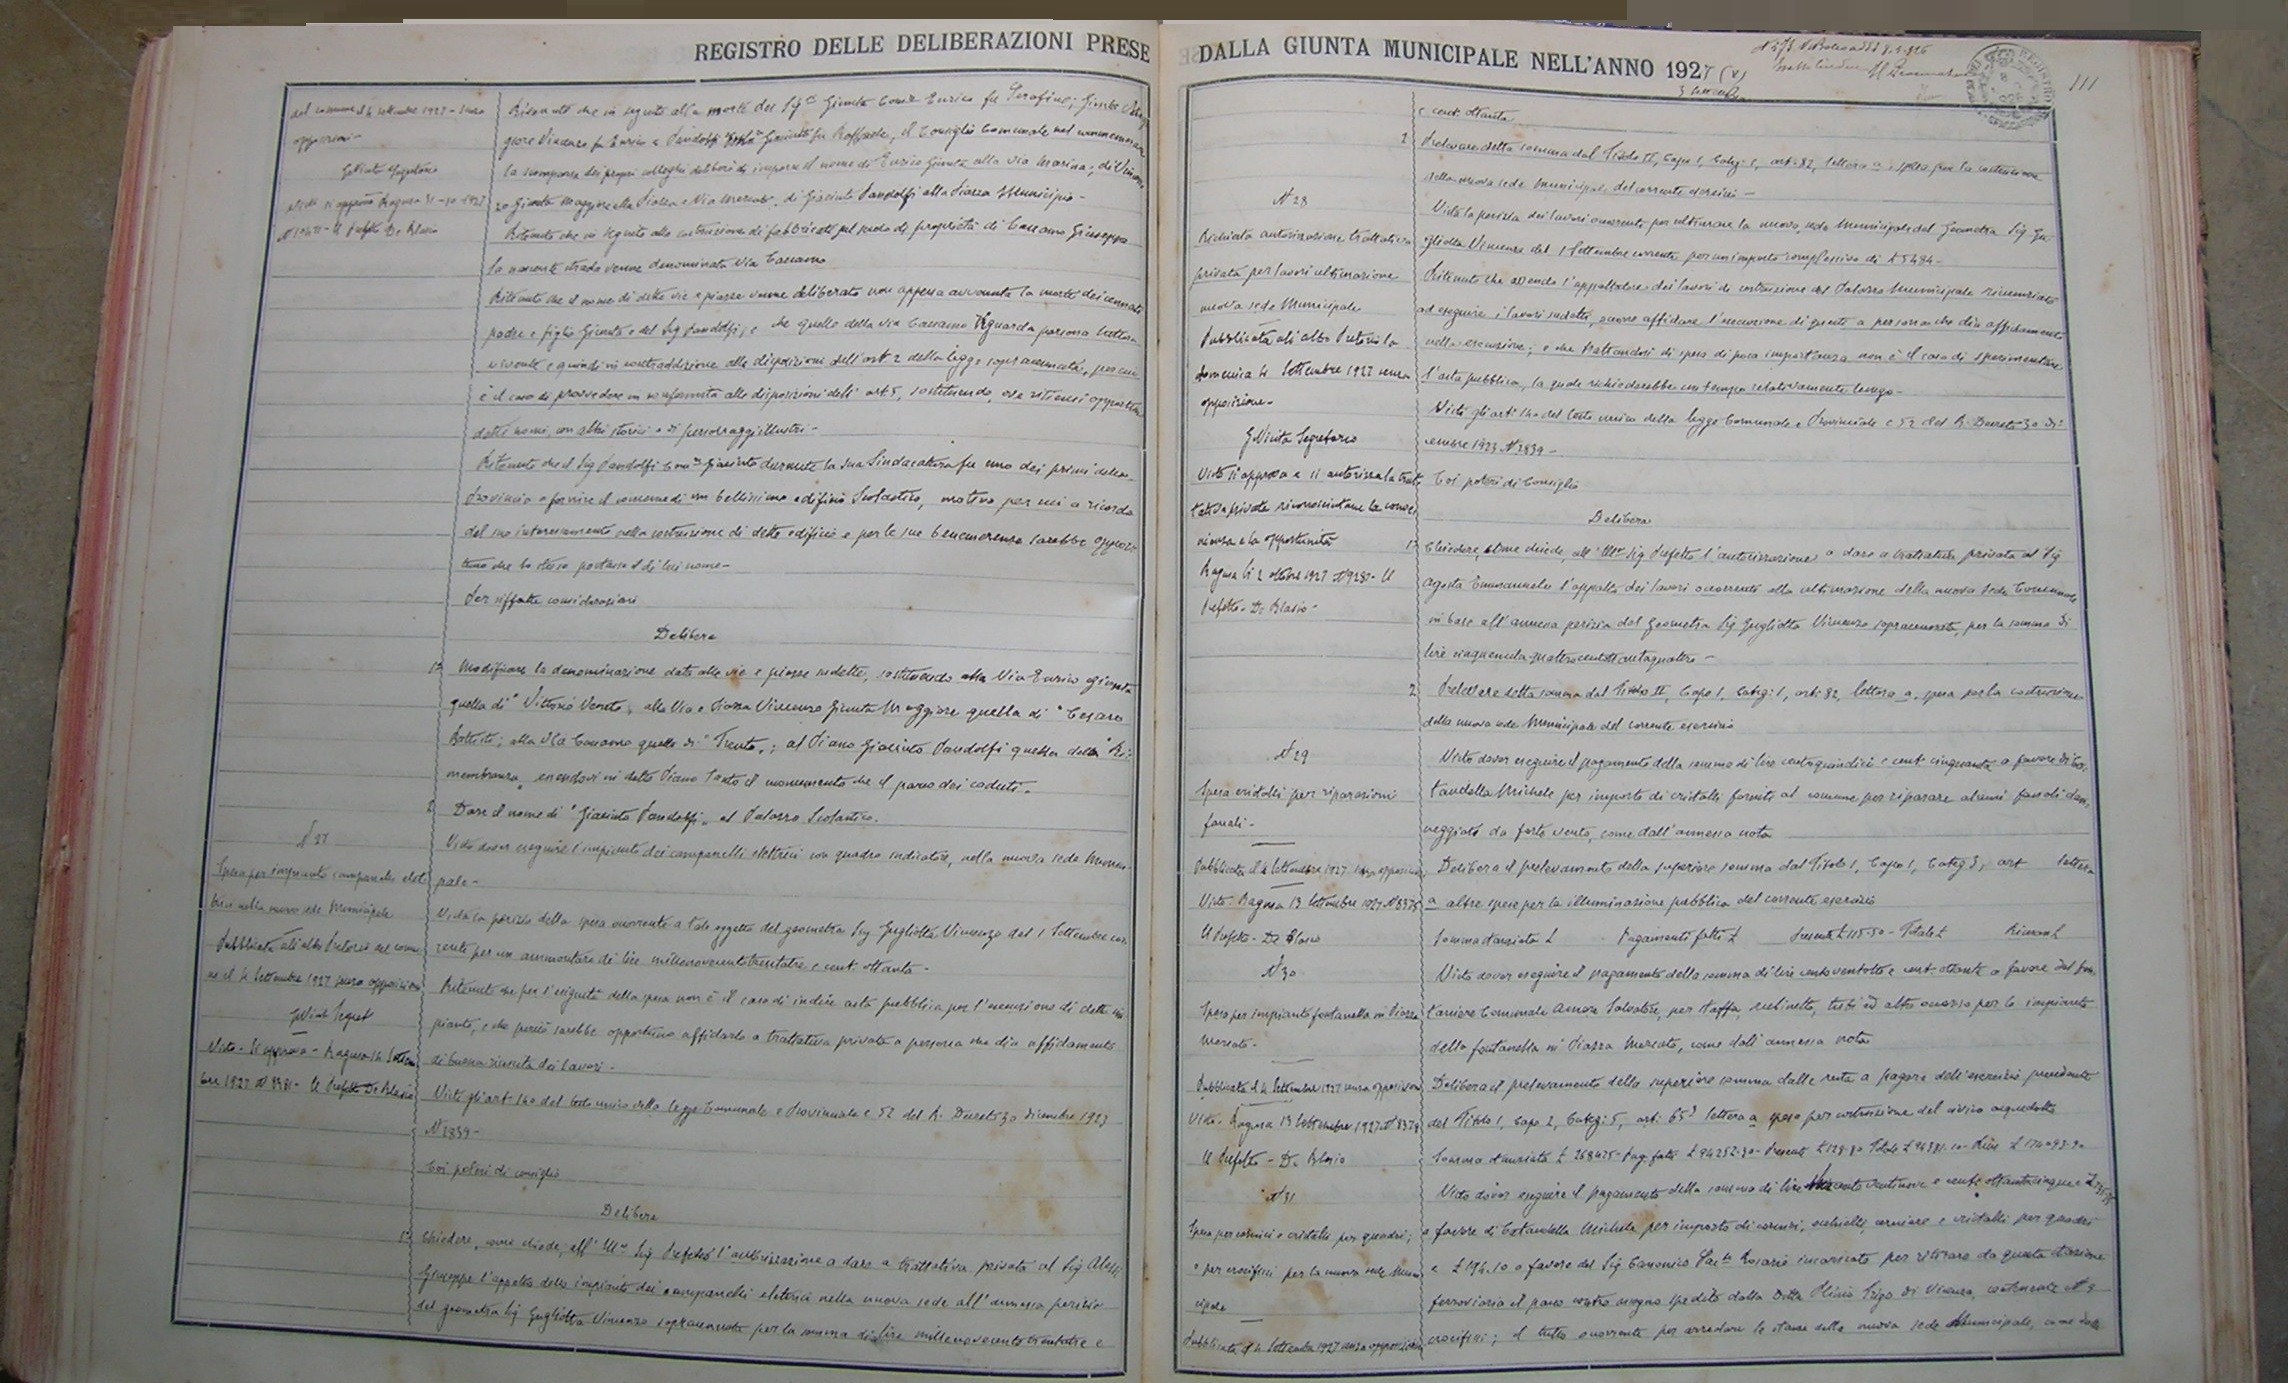 REGISTRO DELLE DELIBERAZIONI PRESE
del comune il 4 settembre 1927 - senza
opposizioni -
Giunta Segretario
Visto si approva Ragusa 31-10-1927
Il Prefetto De Blasio
Ritenuto che in seguito alla morte dei Sigri Giunta Enrico fu Serafino; Giunta
giore Vincenzo fu Enrico e Pandolfi Giacinto fu Raffaele, il Consiglio Comunale nel
la scomparsa dei propri colleghi deliberò di imporre il nome di Enrico Giunta alla via Marina; di Vincen
zo Giunta Maggiore alla Piazza e Via Mercato, di Giacinto Pandolfi alla Piazza Municipio -
Ritenuto che in seguito alla costruzione di fabbricati sul suolo di proprietà di Caccamo Giuseppe
la nascente strada venne denominata Via Caccamo
Ritenuto che il nome di dette vie e piazze venne deliberato non appena avvenuta la morte dei cennati
padre e figlio Giunta e del Sig Pandolfi, e che quello della via Caccamo riguarda persona tuttora
vivente e quindi in contraddizione alle disposizioni dell'art 2 della legge sopracennata, per cui
è il caso di provvedere in conformità alle disposizioni dell'art. 5, sostituendo, ove ritiensi opportuno
detti nomi, con altri storici o di personaggi illustri -
Ritenuto che il Sig Pandolfi Giacinto durante la sua Sindacatura fu uno dei primi della
Provincia a fornire il comune di un bellissimo edificio Scolastico, motivo per cui a ricordo
del suo interessamento nella costruzione di detto edificio e per le sue benemerenze sarebbe oppor
tuno che lo stesso portasse il di lui nome -
Per siffatte considerazioni
Delibera
1° Modificare la denominazione data alle vie e piazze sudette, sostituendo alla Via Enrico Giunta
quella di "Vittorio Veneto", alla Via e Piazza Vincenzo Giunta Maggiore quella di "Cesare
Battisti; alla Via Caccamo quella di "Trento"; al Piano Giacinto Pandolfi quella della "Ri-
membranza" essendovi in detto Piano tanto il monumento che il parco dei caduti.
2 Dare il nome di "Giacinto Pandolfi" al Palazzo Scolastico.
N 27
Spesa per impianto campanelli elet
trici nella nuova sede Municipale
Pubblicata all'albo Pretorio del comu
ne il 4 Settembre 1927 senza opposizioni
Giunta Segret
Visto - Si approva - Ragusa 14 Settem
bre 1927 N 8381 - Il Prefetto De Blasio
Visto dover eseguire l'impianto dei campanelli elettrici con quadro indicatore, nella nuova sede Munici
pale -
Vista la perizia della spesa occorrente a tale oggetto del geometra Sig Gugliotta Vincenzo del 1 Settembre cor
rente per un ammontare di lire millenovecentotrentatre e cent. ottanta -
Ritenuto che per l'esiguità della spesa non è il caso di indire asta pubblica per l'esecuzione di detto im
pianto, e che perciò sarebbe opportuno affidarlo a trattativa privata a persona che dia affidamento
di buona riuscita dei lavori -
Visto gli art 140 del testo unico della legge Comunale e Provinciale e 52 del R. Decreto 30 dicembre 1923
N 2839 -
Coi poteri di consiglio
Delibera
1° Chiedere, come chiede, all'Illmo Sig Prefetto l'autorizzazione a dare a trattativa privata al Sig
Giuseppe l'appalto dello impianto dei campanelli elettrici nella nuova sede all'annessa perizia
del geometra Sig Gugliotta Vincenzo sopracennata per la somma di lire millenovecentotrentatre e
DALLA GIUNTA MUNICIPALE NELL'ANNO 1927 (V)
111
e cent. ottanta
2 Prelevare detta somma dal Titolo II, Capo 1, Categ: 1, art. 82, lettera a: spesa per la costruzione
della nuova sede Municipale del corrente esercizio -
N 28
Richiesta autorizzazione trattativa
privata per lavori ultimazione
nuova sede Municipale
Pubblicata all'albo Pretorio la
domenica 4 Settembre 1927 senza
opposizione -
Giunta Segretario
Visto si approva e si autorizza la trat
tativa privata riconoscendone la conve
nienza e la opportunità
Ragusa li 2 ottobre 1927 N 9281 - Il
Prefetto - De Blasio -
Vista la perizia dei lavori occorrenti per ultimare la nuova sede Municipale del Geometra Sig Gu
gliotta Vincenzo del 1 Settembre corrente per un importo complessivo di £ 5484 -
Ritenuto che avendo l'appaltatore dei lavori di costruzione del Palazzo Municipale rinunziato
ad eseguire i lavori sudetti, occorre affidare l'esecuzione di questi a persona che dia affidamento
nella esecuzione; e che trattandosi di spesa di poca importanza non è il caso di sperimentare
l'asta pubblica, la quale richiederebbe un tempo relativamente lungo -
Visti gli art 140 del testo unico della legge Comunale e Provinciale e 52 del R. Decreto 30 Di-
cembre 1923 N 2839 -
Coi poteri di Consiglio
Delibera
1° Chiedere, come chiede, all'Illmo Sig Prefetto l'autorizzazione a dare a trattativa privata al Sig
Agosta Emmanuele l'appalto dei lavori occorrenti alla ultimazione della nuova sede Comunale
in base all'annessa perizia del geometra Sig Gugliotta Vincenzo sopracennata, per la somma di
lire cinquemilaquattrocentottantaquattro -
2 Prelevare detta somma dal Titolo II, Capo 1, Categ: 1, art: 82, lettera a, spesa per la costruzione
della nuova sede Municipale del corrente esercizio
N 29
Spesa cristalli per riparazioni
fanali -
Pubblicata il 4 Settembre 1927 senza opposizioni
Visto - Ragusa 13 Settembre 1927 N 8375
Il Prefetto - De Blasio
Visto dover eseguire il pagamento della somma di lire centoquindici e cent cinquanta a favore di Co
tandella Michele per importo di cristalli forniti al comune per riparare alcuni fanali dan
neggiati da forte vento, come dall'annessa nota
Delibera il prelevamento della superiore somma dal Titolo 1, Capo 1, Categ 3, art lettera
a altre spese per la illuminazione pubblica del corrente esercizio
Somma stanziata £ Pagamenti fatti £ Presente £ 115.50 - Totale £ Rimane £
N 30
Spesa per impianto fontanella in Piazza
Mercato -
Pubblicata il 4 Settembre 1927 senza opposizioni
Visto. Ragusa 13 Settembre 1927 N 8374
Il Prefetto - De Blasio
Visto dover eseguire il pagamento della somma di lire centoventotto e cent. ottanta a favore del fon
taniere Comunale Amore Salvatore, per staffa, rubinetto, tubi ed altro occorso per lo impianto
della fontanella in Piazza Mercato, come dall'annessa nota
Delibera il prelevamento della superiore somma dalle resta a pagare dell'esercizio precedente
del Titolo 1, Capo 2, Categ: 5, art: 65 lettera a spesa per costruzione del civico acquedotto
Somma stanziata £ 268475 - Pag. fatti £ 94252.30 - Presente £ 128.80 Totale £ 94381.10 - £ 174093.90
N 31
Spesa per cornici e cristalli per quadri;
e per crocifissi per la nuova sede Muni
cipale
Pubblicata il 4 Settembre 1927 senza opposizioni
Visto dover eseguire il pagamento della somma di lire e cent: ottantacinque
a favore di Cotandella Michele per importo di cornici, occhielli, cerniere e cristalli per quadri
e £ 194.10 a favore del Sig Canonico Rosario incaricato per ritirare da questa stazione
ferroviaria il pacco contro assegno spedito dalla Ditta di Vicenza, contenente N 9
crocifissi; il tutto occorrente per arredare le stanze della nuova sede Municipale, come dalla